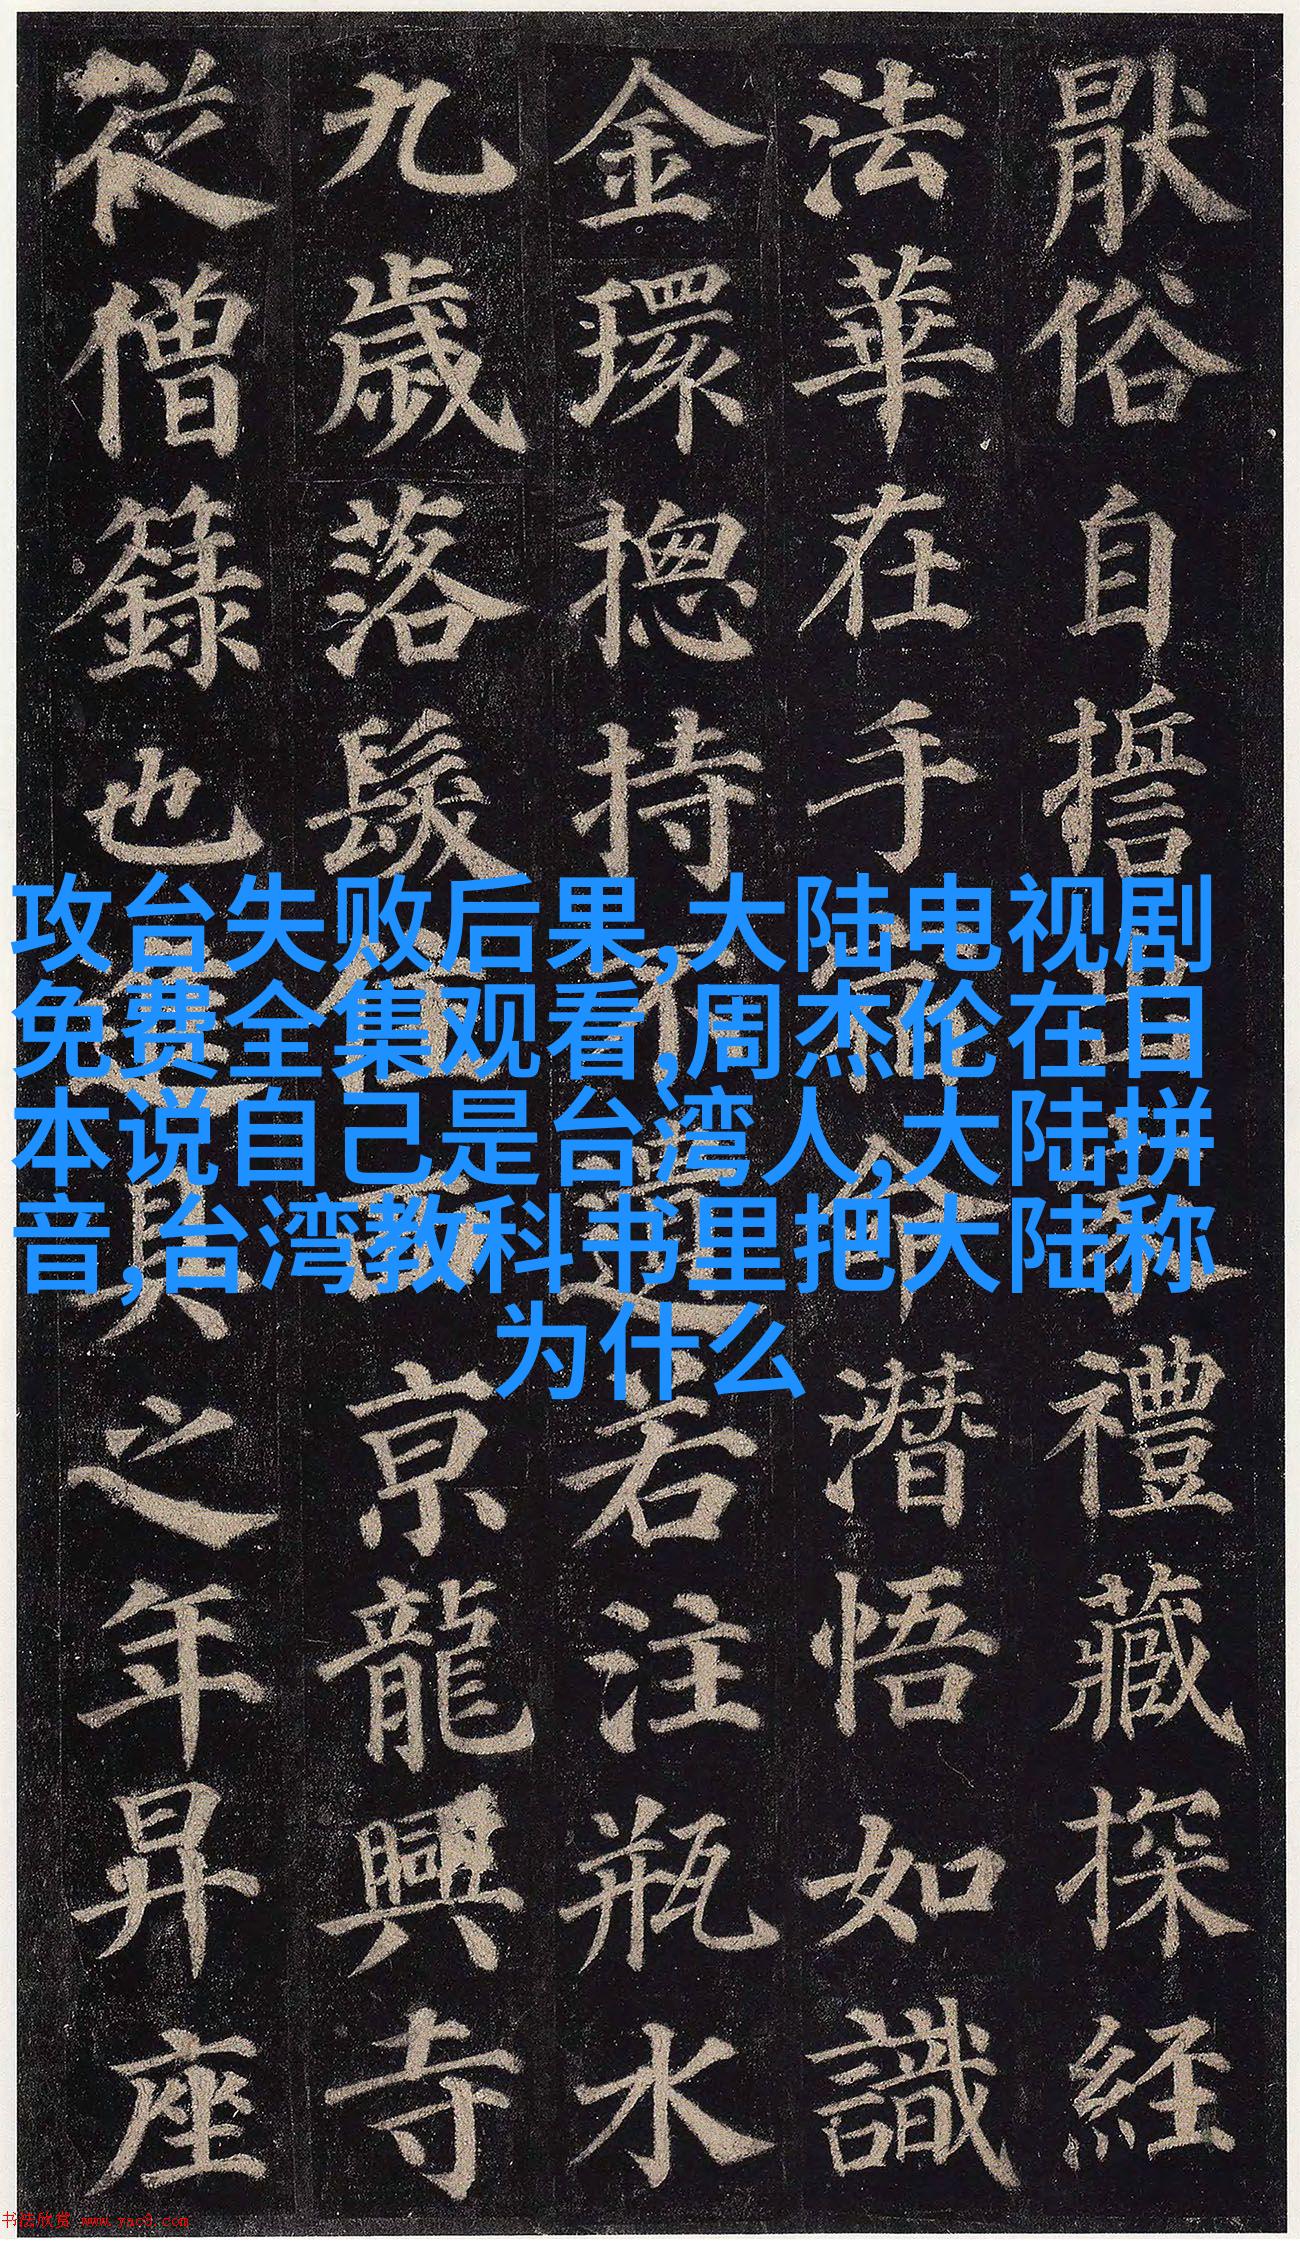 猒俗自誓出家禮藏探經
法華在手宿命潛悟如識
金環揔持不遺若注瓶水
九歲落髮住西亰龍興寺
從僧籙也進具之年昇座
攻台失败后果,大陆电视剧
免费全集观看,周杰伦在日
本说自己是台湾人,大陆拼
音,台湾教科书里把大陆称
为什么
书法欣赏 www.yac8.com